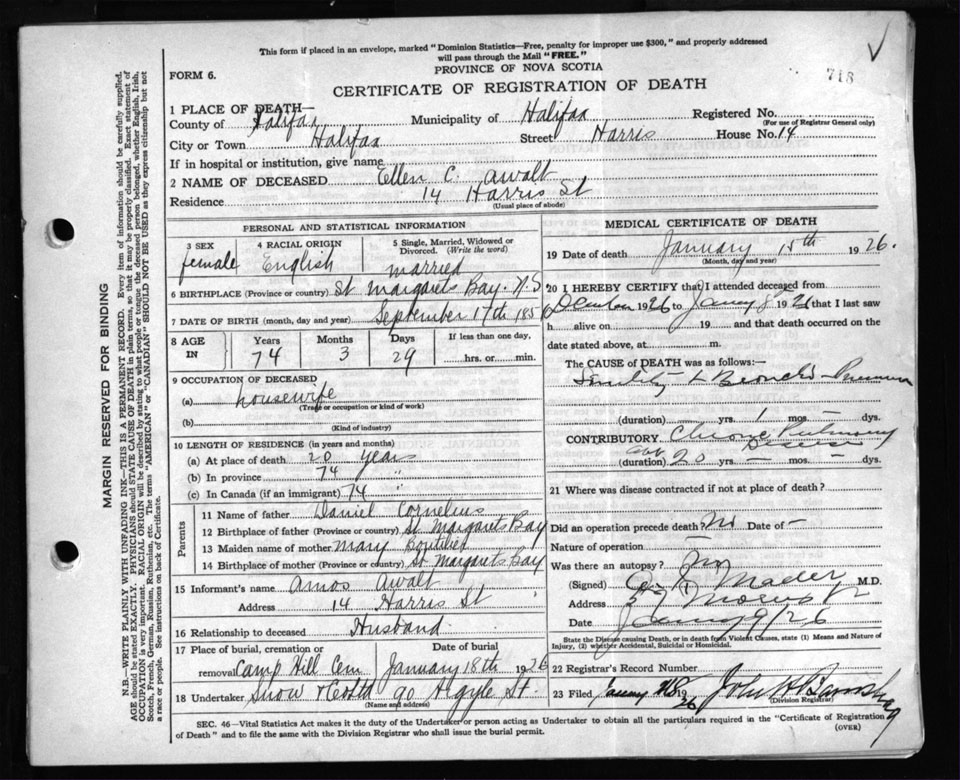 This form if placed in an envelope, marked "Dominion Statistics—Free, penalty for improper use $300," and properly addressed
will pass through the Mail "FREE."
PROVINCE OF NOVA SCOTIA
718
FORM 6.
CERTIFICATE OF REGISTRATION OF DEATH
1 PLACE OF DEATH—
County of Halifax Municipality of Halifax Registered No.
(For use of Registrar General only)
City or Town Halifax Street Harris House No. 14
If in hospital or institution, give name
2 NAME OF DECEASED Ellen C. Awalt
Residence 14 Harris St
(Usual place of abode)
PERSONAL AND STATISTICAL INFORMATION
3 SEX 4 RACIAL ORIGIN 5 Single, Married, Widowed or Divorced. (Write the word)
female English married
6 BIRTHPLACE (Province or country) St Margarets Bay. N.S
7 DATE OF BIRTH (month, day and year) September 17th 185
8 AGE IN Years Months Days If less than one day,
74 3 29 hrs. or min.
9 OCCUPATION OF DECEASED
(a) housewife
(Trade or occupation or kind of work)
(b)
(Kind of industry)
10 LENGTH OF RESIDENCE (in years and months)
(a) At place of death 20 years
(b) In province 74 "
(c) In Canada (if an immigrant) 74 "
Parents
11 Name of father Daniel Cornelius
12 Birthplace of father (Province or country) St Margarets Bay
13 Maiden name of mother Mary Boutilier
14 Birthplace of mother (Province or country) St Margarets Bay
15 Informant's name Amos Awalt
Address 14 Harris St
16 Relationship to deceased Husband
17 Place of burial, cremation or removal Date of burial
Camp Hill Cem January 18th 1926
18 Undertaker Snow & Co Ltd 90 Argyle St.
(Name and address)
MEDICAL CERTIFICATE OF DEATH
19 Date of death January 15th 1926.
(Month, day and year)
20 I HEREBY CERTIFY that I attended deceased from
1926 to 1926 that I last saw
h alive on 19 and that death occurred on
date stated above, at m.
The CAUSE OF DEATH was as follows:—
Senility &
(duration) yrs. 1 mos. – dys.
CONTRIBUTORY Pulmonary
Disease
(duration) 20 yrs. – mos. – dys.
21 Where was disease contracted if not at place of death?
Did an operation precede death? No Date of –
Nature of operation –
Was there an autopsy? No
(Signed) Mader M.D.
Address 57 Morris St
Date 26
State the Disease causing Death, or in death from Violent Causes, state (1) Means and Nature of
Injury, (2) whether Accidental, Suicidal or Homicidal.
22 Registrar's Record Number
23 Filed 19 26 John
(Division Registrar)
SEC. 46—Vital Statistics Act makes it the duty of the Undertaker or person acting as Undertaker to obtain all the particulars required in the "Certificate of Registration
of Death" and to file the same with the Division Registrar who shall issue the burial permit.
(OVER)
MARGIN RESERVED FOR BINDING
N.B.—WRITE PLAINLY WITH UNFADING INK—THIS IS A PERMANENT RECORD. Every item of information should be carefully supplied.
AGE should be stated EXACTLY. PHYSICIANS should STATE CAUSE OF DEATH in plain terms, so that it may be properly classified. Exact statement of
OCCUPATION is very important. RACIAL ORIGIN will be described by stating to what people or tongue the deceased person belonged, whether English, Irish,
Scotch, French, German, Russian, Ruthenian, etc. The terms "AMERICAN" or "CANADIAN" SHOULD NOT BE USED as they express citizenship but not
a race or people. See instructions on back of Certificate.